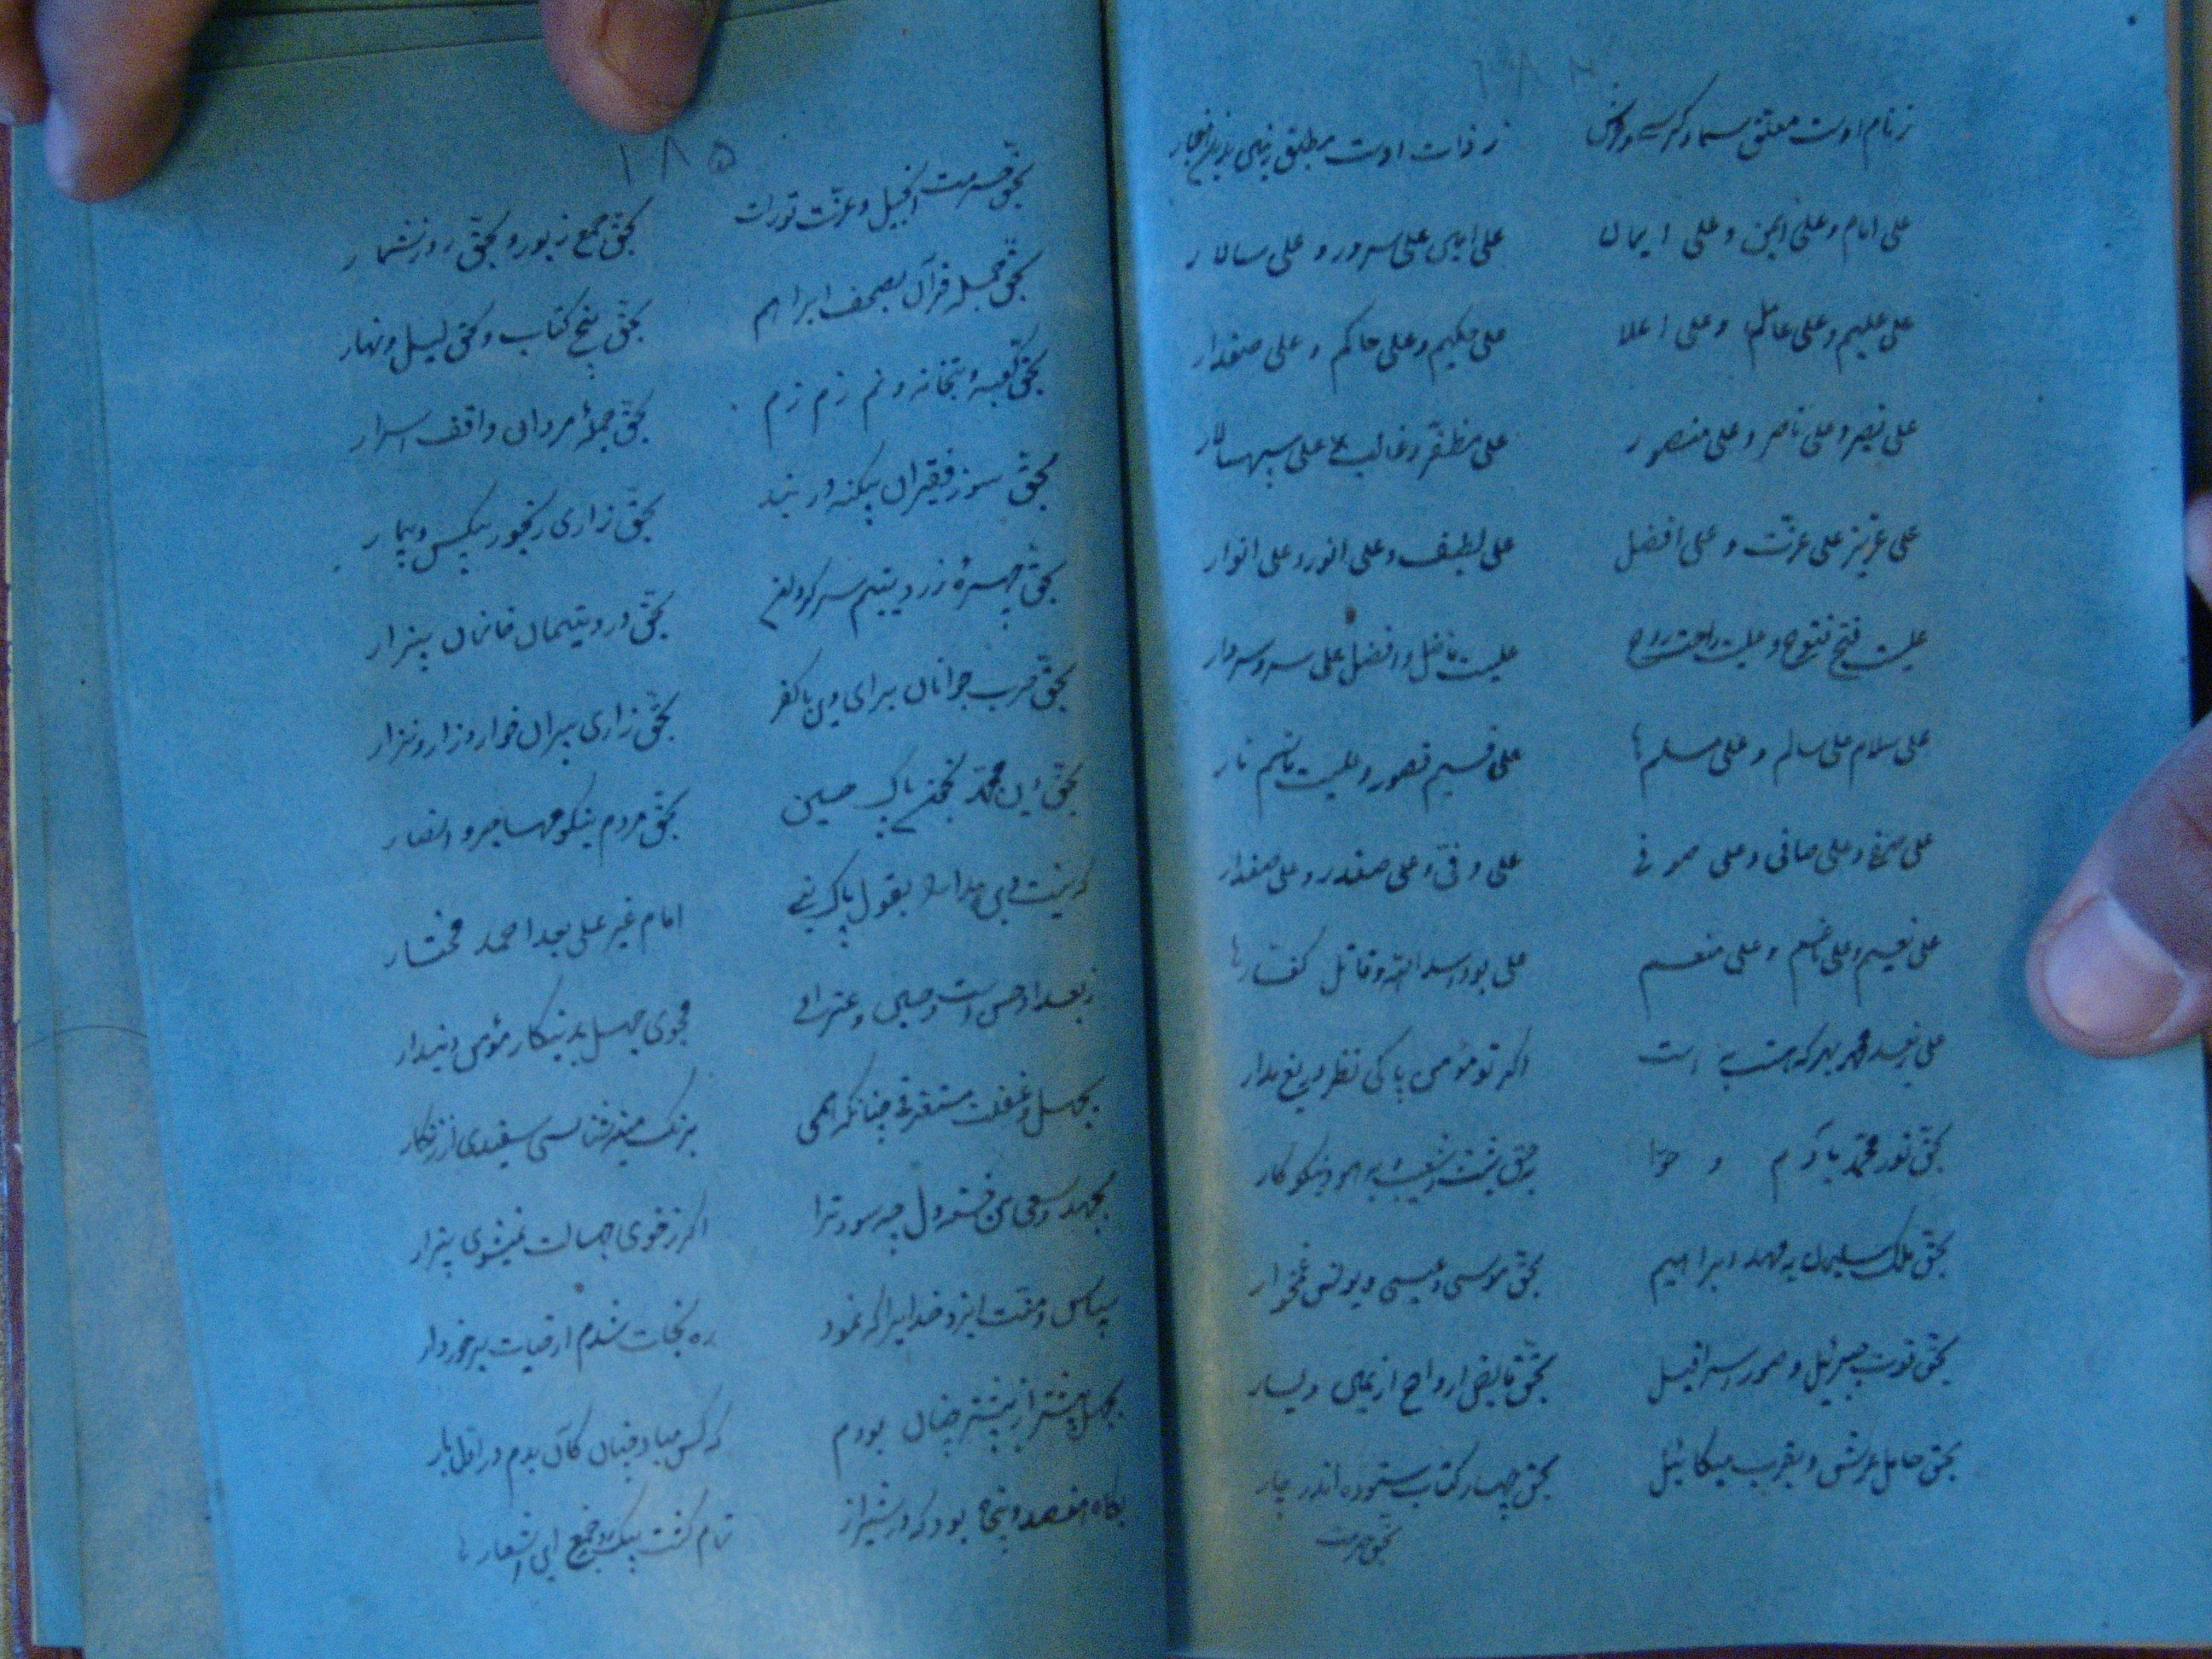 ۱۸۴
ز نام اوست معلق سما و کرسی و عرش ز ذات اوست مطبق زمین
علی امام و علی ایمن و علی ایمان علی امین علی سرور و علی سالار
علی علیم و علی عالم و علی اعلا علی حکیم و علی حاکم و علی صفدار
علی نصیر و علی ناصر و علی منصور علی مظفر و غالب علی سپهسالار
علی عزیز علی عزت و علی افضل علی لطیف و علی انور و علی انوار
علیست فتح فتوح و علیست راحت روح علیست فاضل و افضل علی سر و سردار
علی سلام علی سالم و علی مسلم علی قسیم قصور و علیست قاسم نار
علی صفی و علی صافی و علی صوفی علی وفی و علی صفدر و علی صفدار
علی نعیم و علی ناعم و علی منعم علی بود اسد الله و قاتل کفار
علی ز بعد محمد ز هر که هست به است اگر تو مؤمن پاکی نظر دریغ مدار
بحق نور محمد بآدم و حوا بحق شیث و شعیب و هود نیکوکار
بحق ملک سلیمان ابراهیم بحق موسی و عیسی و یونس غمخوار
بحق قوت جبرئیل و صور اسرافیل بحق قابض ارواح از یمین و یسار
بحق حامل عرش و بقرب میکائیل بحق چهار کتاب ستوده اندر چار
بحق حرمت
۱۸۵
بحق حرمت انجیل و عزت تورات بحق جمع زبور و بحق روز شمار
بحق جمله قرآن بصحف ابراهم بحق پنج کتاب و بحق لیل و نهار
بحق کعبه و بتخانه و نم زم زم بحق جملهٔ مردان واقف اسرار
بحق سوز فقیران بیگنه در بند بحق زاری رنجور بیکس و بیمار
بحق چهرهٔ زرد یتیم سرکوفته بحق درد یتیمان خانمان بیزار
بحق ضرب جوانان برای دین با کفر بحق زاری پیران خوار و زار و نزار
بحق دین محمد بخون پاک حسین بحق مردم نیکو مهاجر و انصار
که نیست دین هدی را بقول پاک نبی امام غیر علی بعد احمد مختار
ز بعد او حسن است و حسین و عترت او مجوی جهل بد نیکار مؤمن دیندار
بجهل و غفلت مستغرقی چنانکه همی برنگ می نشناسی سفیدی از زنگار
بجهد و سعی من خسته دل چه سود ترا اگر ز خوی جهالت نمیشوی بیزار
سپاس و منت ایزد خدایرا که نمود ره نجات شدم از حیات برخوردار
بجهل بیشتر از پیشتر چنان بودم که کس مباد چنان کان بدم در اول بار
بگاه هفصد و پنجاه بود که در شیراز تمام گشت بیک روز جمع این اشعار